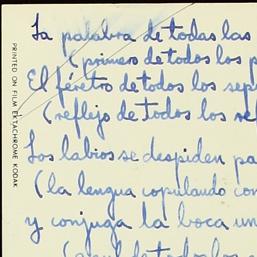 La palabra de todas las
(primero de todos los p
El féretro de todos los sep
(reflejo de todos los ref
Los labios se despiden pa
(la lengua copulando con
y conjuga la boca un
(azul de todos los
PRINTED ON FILM EKTACHROME KODAK